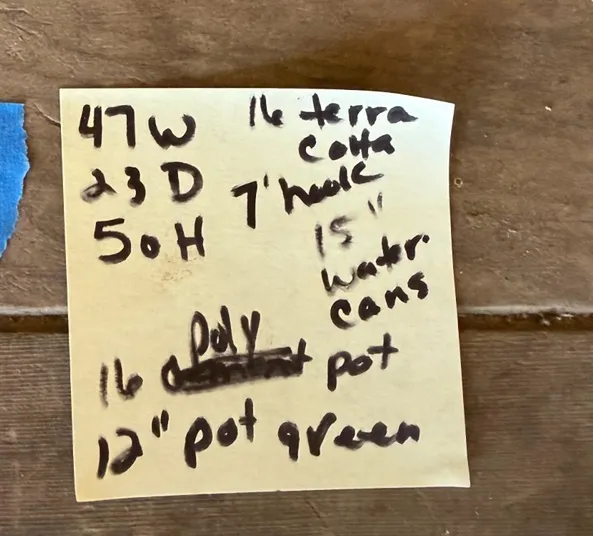 47 W
23 D
50 H
16 terra
cotta
7' hook
15"
water
cans
poly
16 cement pot
12" pot green